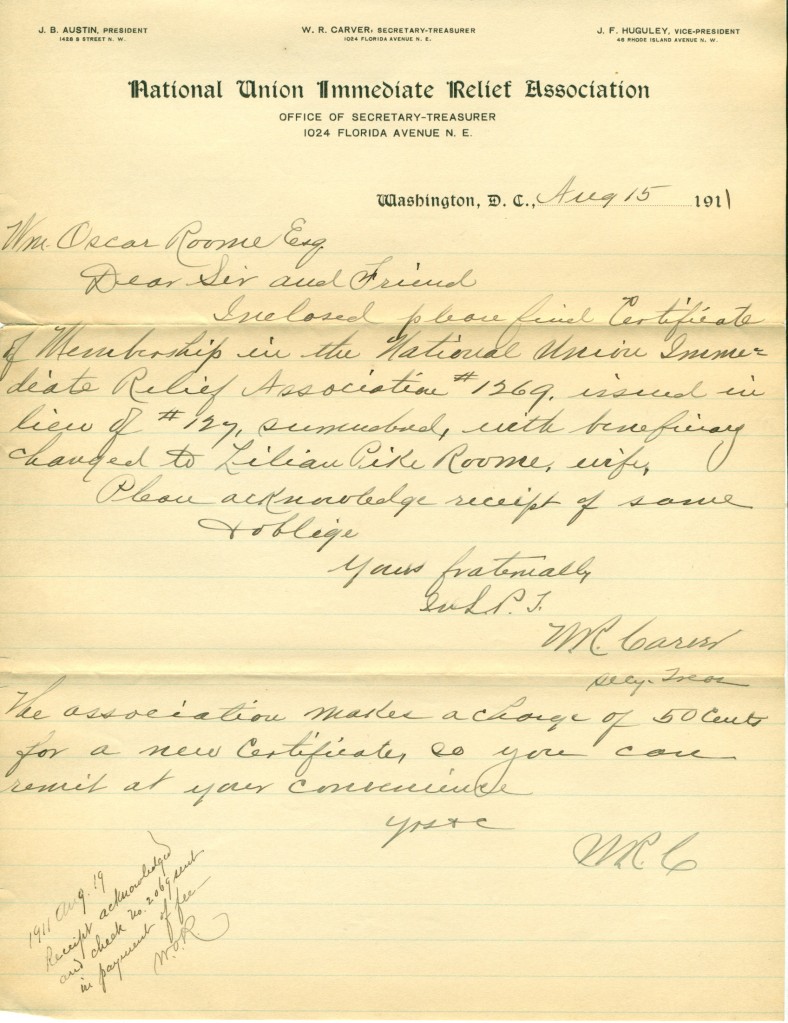 J. B. AUSTIN, PRESIDENT
1428 S STREET N. W.
W. R. CARVER, SECRETARY-TREASURER
1024 FLORIDA AVENUE N. E.
J. F. HUGULEY, VICE-PRESIDENT
48 RHODE ISLAND AVENUE N. W.
National Union Immediate Relief Association
OFFICE OF SECRETARY-TREASURER
1024 FLORIDA AVENUE N. E.
Washington, D. C., Aug 15 1911
Wm. Oscar Roome Esq
Dear Sir and Friend
Inclosed please find Certificate
of Membership in the National Union Imme=
diate Relief Association #1269, issued in
lieu of #127, with beneficiary
changed to Lilian Pike Roome, wife,
Please acknowledge receipt of same
& oblige
Yours fraternally
W.R. Carver
Secy-Treas
The association makes a charge of 50 Cents
for a new Certificate, so you can
remit at your convenience
Yrs &c
W.R.C
1911 Aug. 19
Receipt acknowledged
and check No. 2069 sent
in payment of fee—
W.O.R.